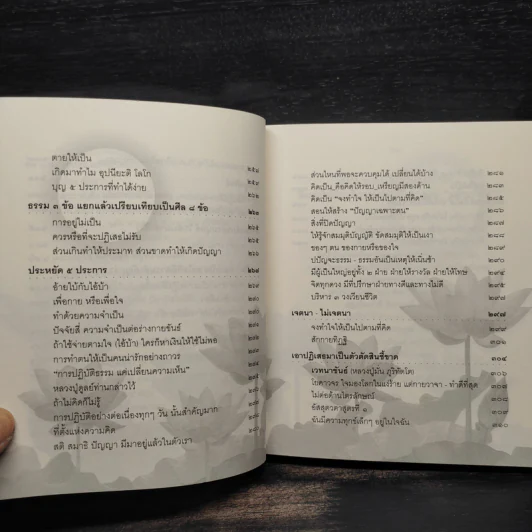 ตายให้เป็น
เกิดมาทำไม อุปนียะติ โลโก ๒๕๘
บุญ ๕ ประการที่ทำได้ง่าย
ธรรม ๓ ข้อ แยกแล้วเปรียบเทียบเป็นศีล ๘ ข้อ
การอยู่ไม่เป็น
ควรหรือที่จะปฏิเสธไม่รับ
ส่วนเกินทำให้ประมาท ส่วนขาดทำให้เกิดปัญญา ๒๖๖
ประหยัด ๕ ประการ ๒๖๗
อ้ายไป๋กับไอ้บ้า
เพื่อกาย หรือเพื่อใจ
ทำด้วยความจำเป็น
ปัจจัยสี่ ความจำเป็นต่อร่างกายขันธ์
ถ้าใช้จ่ายตามใจ (ไอ้บ้า) ใครก็หาเงินให้ใช้ไม่พอ
การทำตนให้เป็นคนน่ารักอย่างถาวร
"การปฏิบัติธรรม แค่เปลี่ยนความเห็น"
หลวงปู่ดูลย์ท่านกล่าวไว้
ถ้าไม่คิดก็ไม่รู้
การปฏิบัติอย่างต่อเนื่องทุกๆ วัน นั้นสำคัญมาก
ที่ตั้งแห่งความคิด
สติ สมาธิ ปัญญา มีมาอยู่แล้วในตัวเรา
ส่วนไหนที่พอจะควบคุมได้ เปลี่ยนได้บ้าง ๒๘๑
คิดเป็น คือคิดให้รอบ เหรียญมีสองด้าน ๒๘๓
คิดเป็น "จงทำใจ ให้เป็นไปตามที่คิด" ๒๘๕
สอนให้สร้าง "ปัญญาเฉพาะตน" ๒๘๖
สิ่งที่ปิดปัญญา ๒๘๗
ให้รู้จักสมมุติบัญญัติ ขัดสมมุติให้เป็นเงา ๒๘๘
ของๆ ตน ของกายหรือของใจ
ปปัญจะธรรม - ธรรมอันเป็นเหตุให้เนิ่นช้า
มีผู้เป็นใหญ่อยู่ทั้ง ๒ ฝ่าย ฝ่ายให้รางวัล ฝ่ายให้โทษ ๒๙๔
จิตทุกดวง มีที่ปรึกษาฝ่ายทางดีและทางไม่ดี ๒๙๕
บริหาร ๓ วงเวียนชีวิต ๒๙๗
เจตนา - ไม่เจตนา ๒๙๗
จงทำใจให้เป็นไปตามที่คิด
สักกายทิฏฐิ ๓๐๒
เอาปฏิเสธมาเป็นตัวตัดสินชี้ขาด ๓๐๔
เวทนาขันธ์ (หลวงปู่มั่น ภูริทัตโต) ๓๐๖
โยควรจร ใจมองโลกในแง่ร้าย แต่กายวาจา - ทำดีที่สุด ๓๐๗
ไม่ต่อต้านไตรลักษณ์ ๓๐๘
อัสสุตวตาสูตรที่ ๑ ๓๐๙
ฉันมีความทุกข์เล็กๆ อยู่ในใจฉัน ๓๑๐